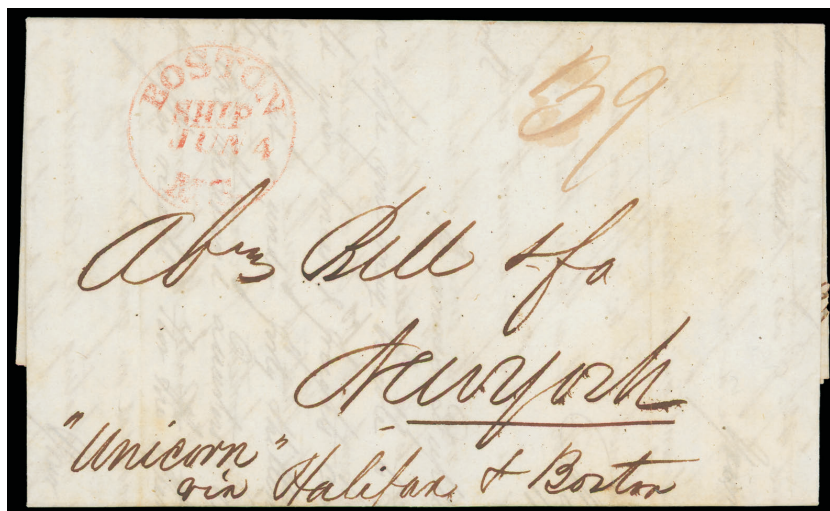 BOSTON
SHIP
JUN 4
39
Abm Bell & Co
New york
"Unicorn"
via Halifax & Boston